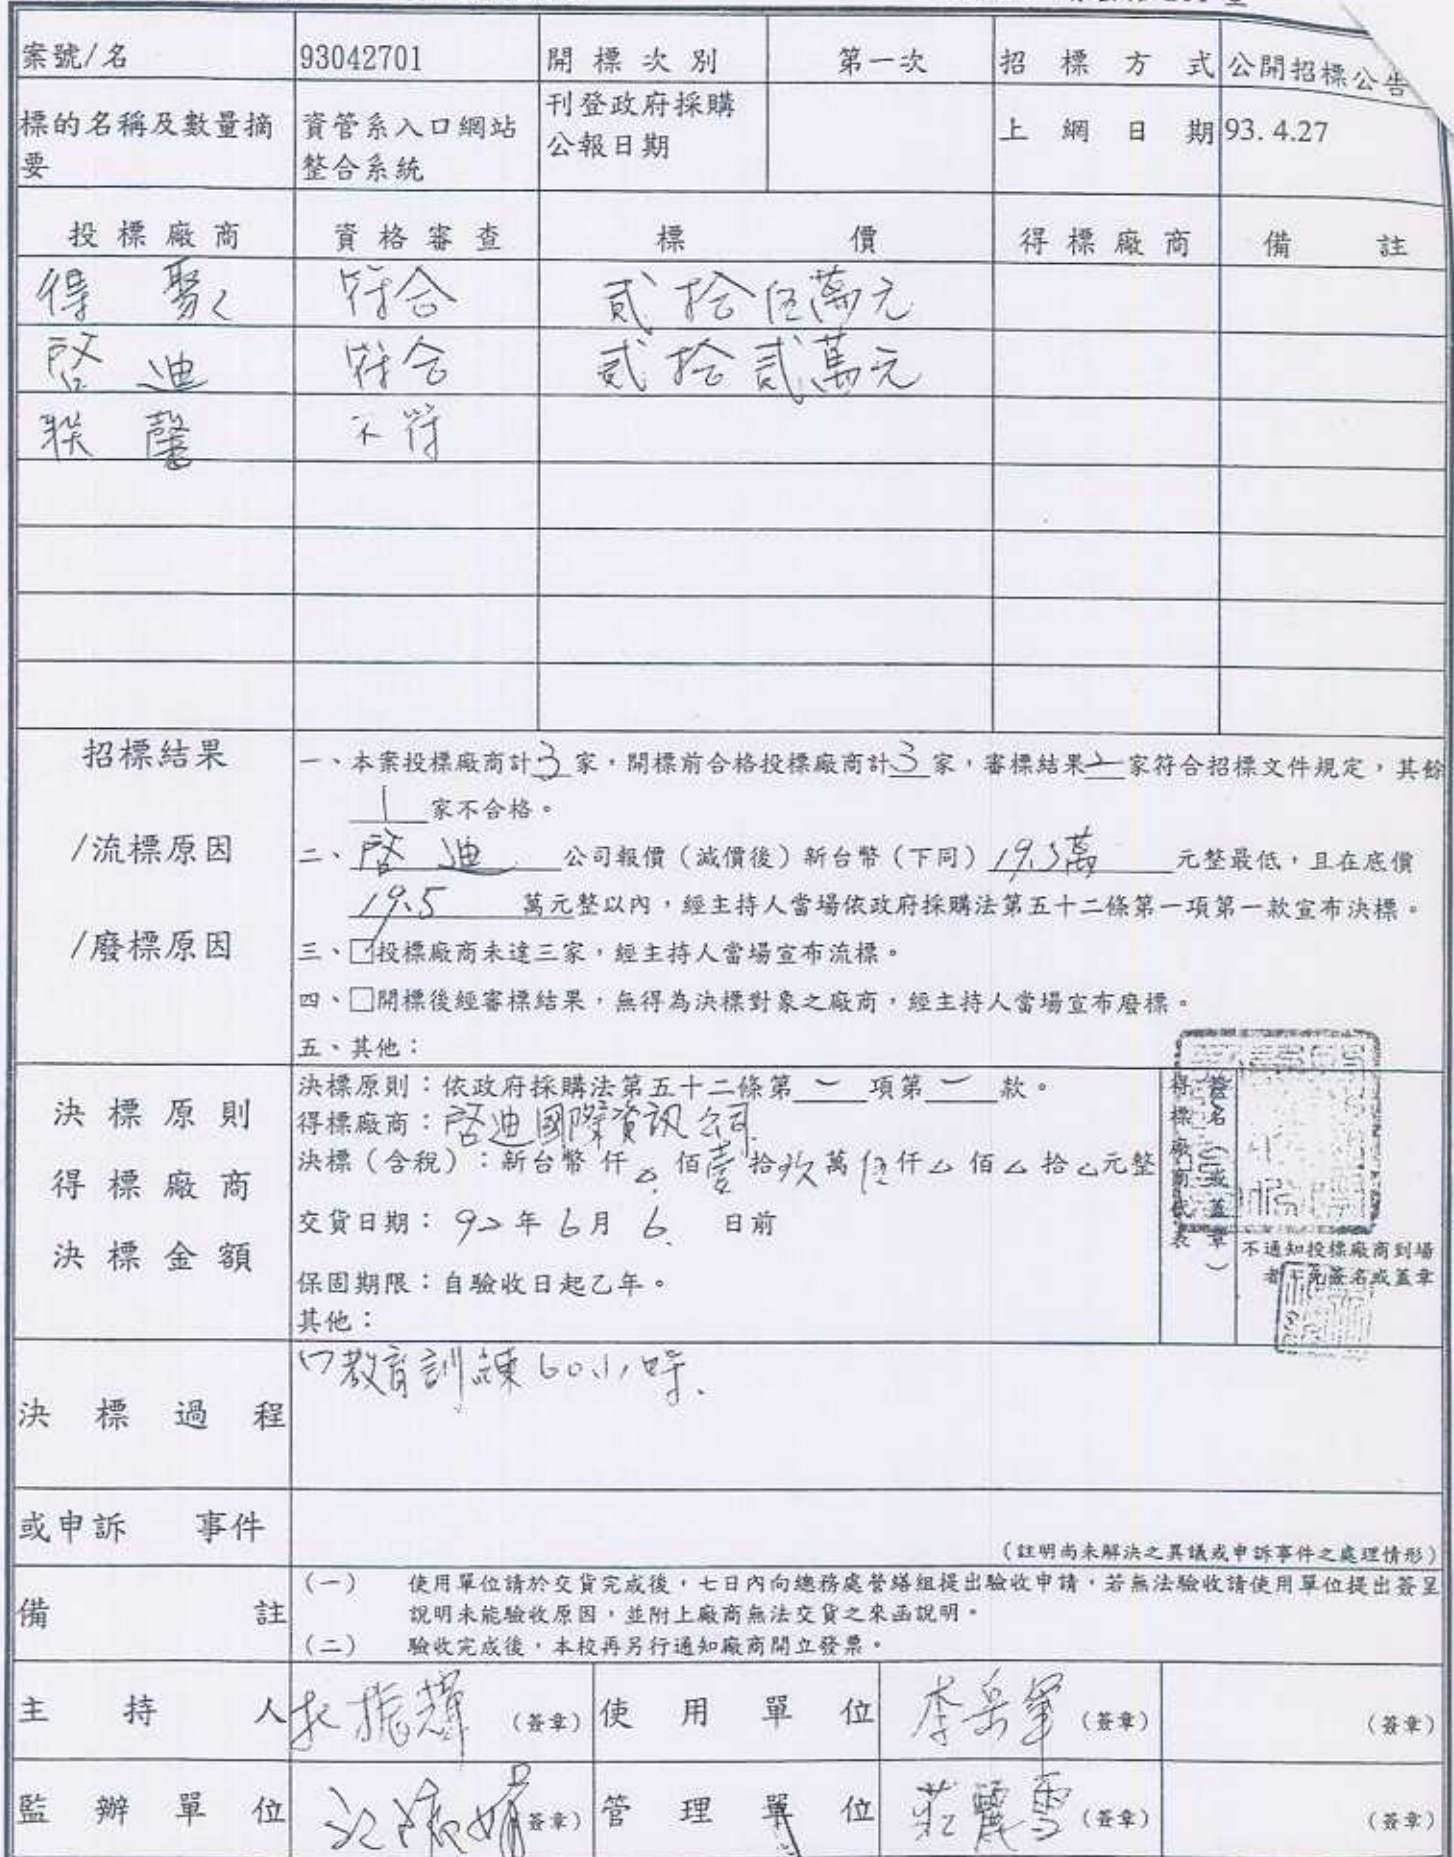 案號/名 93042701 開標次別 第一次 招標方式 公開招標公告
標的名稱及數量摘要 資管系入口網站整合系統 刊登政府採購公報日期 上網日期 93.4.27
投標廠商 資格審查 標價 得標廠商 備註
得聚 符合 貳拾伍萬元
啓迪 符合 貳拾貳萬元
聯馨 不符
招標結果
/流標原因
/廢標原因
一、本案投標廠商計3家,開標前合格投標廠商計3家,審標結果二家符合招標文件規定,其餘
1家不合格。
二、啓迪公司報價(減價後)新台幣(下同)19.5萬元整最低,且在底價
19.5萬元整以內,經主持人當場依政府採購法第五十二條第一項第一款宣布決標。
三、□投標廠商未達三家,經主持人當場宣布流標。
四、□開標後經審標結果,無得為決標對象之廠商,經主持人當場宣布廢標。
五、其他:
決標原則
得標廠商
決標金額
決標原則:依政府採購法第五十二條第一項第一款。
得標廠商:啓迪國際資訊公司
決標(含稅):新台幣 仟 佰壹拾玖萬伍仟 佰 拾 元整
交貨日期: 年6月6日前
保固期限:自驗收日起乙年。
其他:
得標廠商代表
簽名(或蓋章)
不通知投標廠商到場
者 免簽名或蓋章
決標過程
教育訓練60小時.
或申訴 事件
(註明尚未解決之異議或申訴事件之處理情形)
備註
(一) 使用單位請於交貨完成後,七日內向總務處營繕組提出驗收申請,若無法驗收請使用單位提出簽呈
說明未能驗收原因,並附上廠商無法交貨之來函說明。
(二) 驗收完成後,本校再另行通知廠商開立發票。
主持人 振輝 (簽章) 使用單位 李 軍 (簽章) (簽章)
監辦單位 簽章) 管理單位 莊麗雪 (簽章) (簽章)